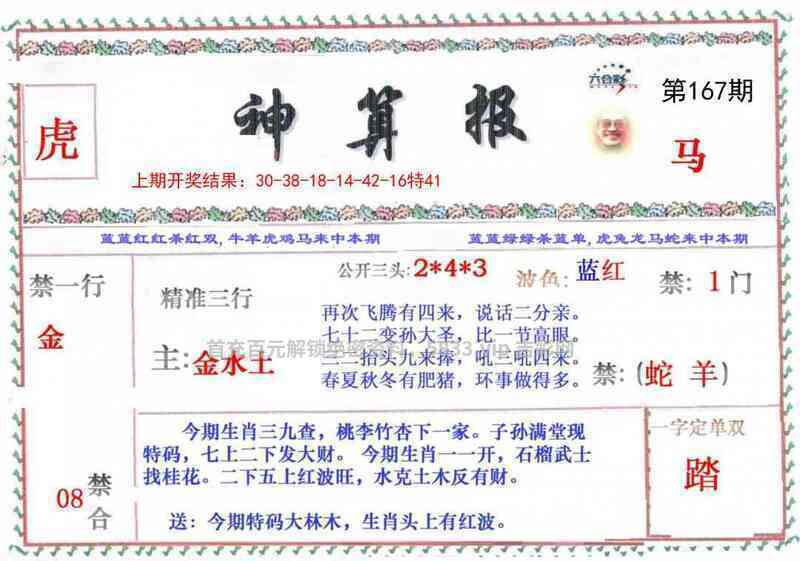 六合彩
第167期
虎
神算报
马
上期开奖结果：30-38-18-14-42-16特41
蓝蓝红红杀红双,牛羊虎鸡马来中本期
蓝蓝绿绿杀蓝单,虎兔龙马蛇来中本期
禁一行
金
精准三行
主:金水土
公开三头:2*4*3
波色:蓝红
禁:1门
再次飞腾有四来，说话二分亲。
七十二变孙大圣，比一节高眼。
春夏秋冬有肥猪，环事做得多。
禁:(蛇 羊)
08
禁合
今期生肖三九查，桃李竹杏下一家。子孙满堂现
特码，七上二下发大财。 今期生肖一一开，石榴武士
找桂花。二下五上红波旺，水克土木反有财。
送：今期特码大林木，生肖头上有红波。
一字定单双
踏